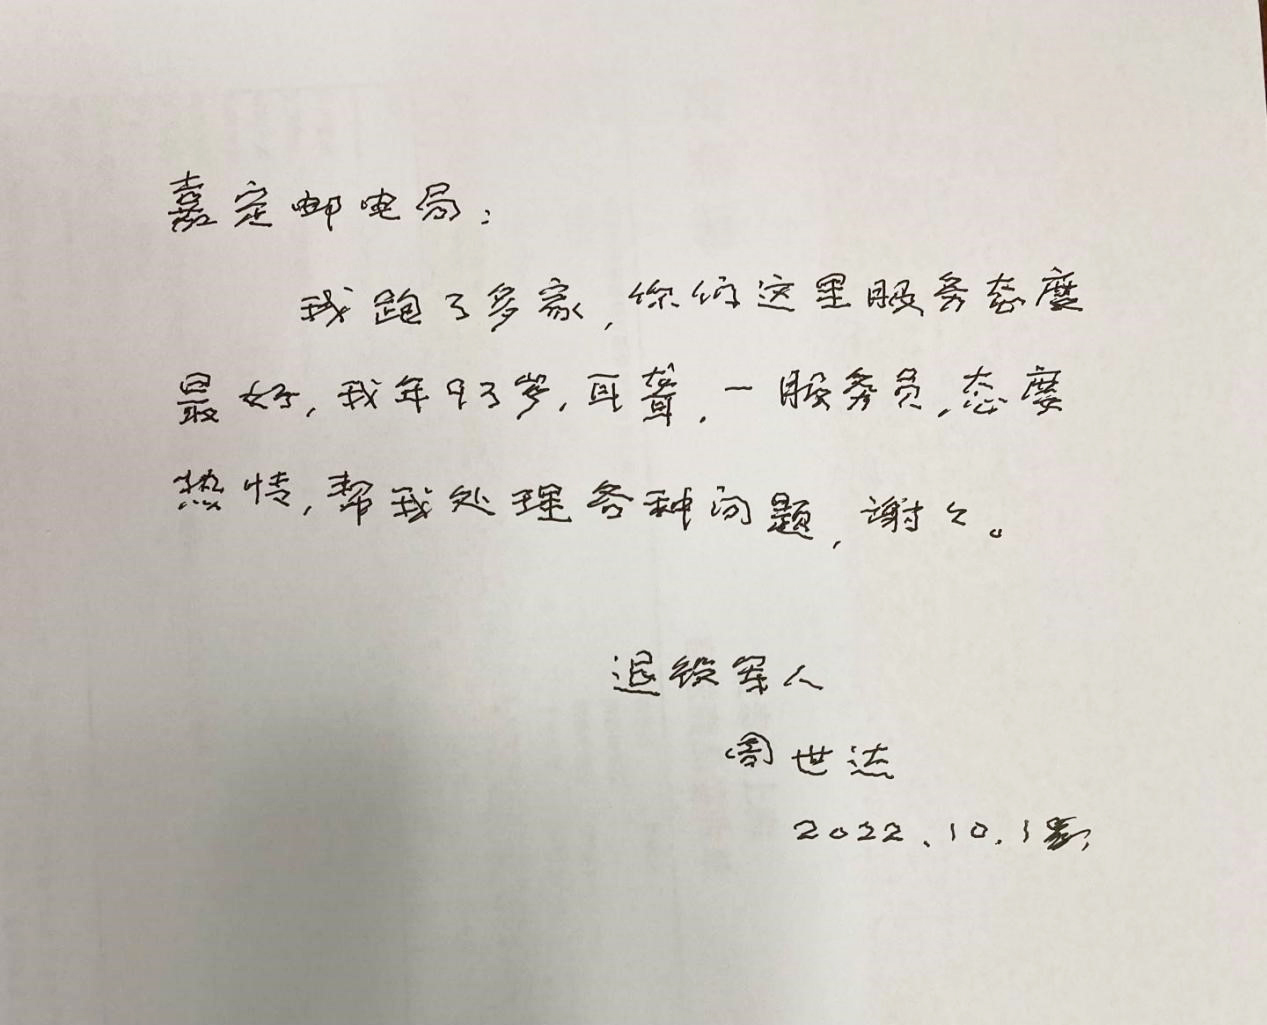 嘉定邮电局：
我跑了多家，你们这里服务态度
最好，我年93岁，耳聋，一服务员，态度
热情，帮我处理各种问题，谢々。
退役军人
周世达
2022.10.1